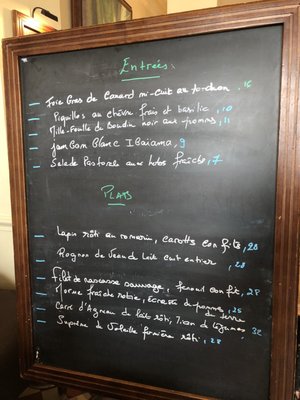 Entrées
— Foie Gras de Canard mi-Cuit au torchon, 16
— Piquillos au chèvre frais et basilic, 10
— Mille-Feuille du Boudin noir aux pommes, 11
— Jambon Blanc Ibaiama, 9
— Salade Pastorel aux fraîche, 7
Plats
— Lapin rôti au romarin, carotte confite, 20
— Rognon de Veau de Lait cuit entier, 28
— Filet de rascasse sauvage, fenouil confit, 28
— Morue fraîche rôtie, Ecrasée de pommes de terre, 25
— Carré d'Agneau de lait rôti, Tian de légumes, 32
— Suprême de Volaille fermière rôti, 28